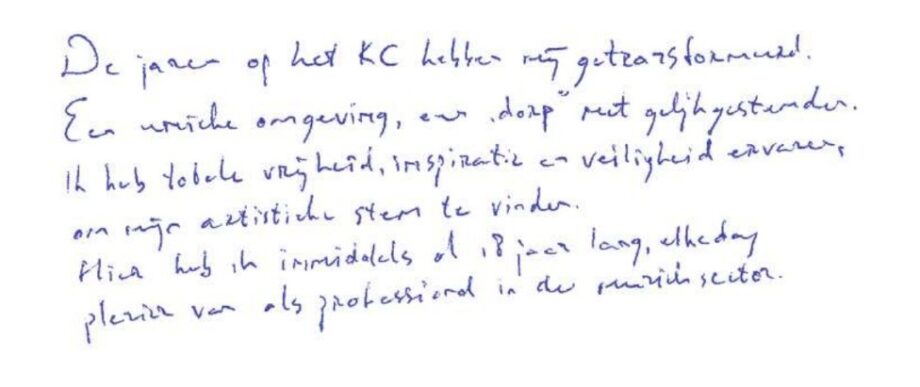 De jaren op het KC hebben mij getransformeerd.
Een unieke omgeving, een "dorp" met gelijkgestemden.
Ik heb totale vrijheid, inspiratie en veiligheid ervaren,
om mijn artistieke stem te vinden.
Hier heb ik inmiddels al 18 jaar lang, elke dag
plezier van als professional in de muzieksector.